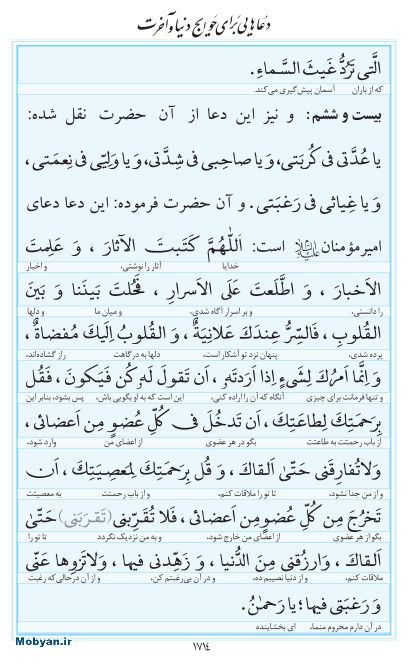 دعاهایی برای حوایج دنیا و آخرت
الَّتى تَرُدُّ غَيثَ السَّماءِ.
که از باران آسمان پیش‌گیری می‌کند.
بیست و ششم: و نیز این دعا از آن حضرت نقل شده:
يا عُدَّتى فى كُرْبَتى، وَ يا صاحِبى فى شِدَّتى، وَ يا وَلِيّى فى نِعمَتى،
وَ يا غِياثى فى رَغبَتى. و آن حضرت فرموده: این دعا دعای
امیرمؤمنان علیه‌السلام است: اَللّٰهُمَّ كَتَبتَ الآثارَ ، وَ عَلِمتَ
خدایا آثار را نوشتی، و اخبار
الاَخبارَ ، وَ اطَّلَعتَ عَلَى الاَسرارِ ، فَحُلتَ بَينَنا وَ بَينَ
را دانستی، و بر اسرار آگاه شدی، و میان ما و دلها
القُلوبِ، فَالسِّرُّ عِندَكَ عَلانِيَةٌ ، وَ القُلوبُ اِلَيكَ مُفضاةٌ ،
پرده شدی، پنهان نزد تو آشکار است، دلها به درگاهت راز گشاده‌اند،
وَ اِنَّما اَمرُكَ لِشَىءٍ اِذا اَرَدتَهُ، اَن تَقولَ لَهُ كُن فَيَكونُ ، فَقُل
و تنها فرمانت برای چیزی آنگاه که آن را اراده کنی، این است که به او بگویی باش، پس بشود، بنابر این
بِرَحمَتِكَ لِطاعَتِكَ ، اَن تَدخُلَ فى كُلِّ عُضوٍ مِن اَعضائى ،
از باب رحمتت به طاعتت بگو در هر عضوی از اعضای من وارد شود،
وَلا تُفارِقَنى حَتّىٰ اَلقاكَ ، وَ قُل بِرَحمَتِكَ لِمَعصِيَتِكَ ، اَن
و از من جدا نشود، تا تو را ملاقات کنم، و از باب رحمتت به معصیتت
تَخرُجَ مِن كُلِّ عُضوٍ مِن اَعضائى، فَلا تُقَرِّبَنى (تَقرَبَنى) حَتّىٰ
بگو از هر عضوی از اعضای من خارج شود، و به من نزدیک نگردد تا تو را
اَلقاكَ ، وَارزُقنى مِنَ الدُّنيا ، وَ زَهِّدنى فيها ، وَلا تَزوِها عَنّى
ملاقات کنم، و از دنیا نصیبم ده، و در آن بی‌رغبتم کن، و از آن درحالی‌که رغبت
وَ رَغبَتى فيها؛ يا رَحمٰنُ.
در آن دارم محروم منما، ای بخشاینده
Mobyan.ir
۱۷۱۴